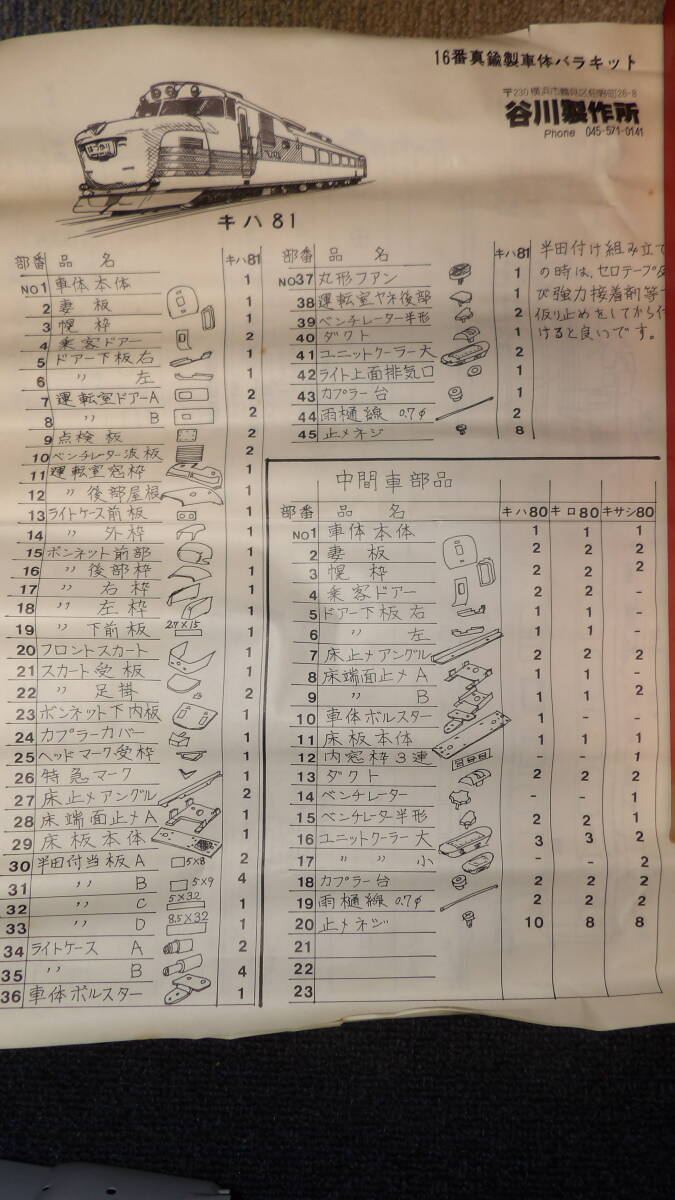 16番真鍮製車体バラキット
〒230 横浜市鶴見区
谷川製作所
Phone 045-571-0141
はつかり
キハ81
部番 品名 キハ81
NO1 車体本体 1
2 妻板 1
3 幌枠 1
4 乗客ドアー 2
5 ドアー下板右 1
6 〃 左 1
7 運転室ドアーA 2
8 〃 B 2
9 点検板 2
10 ベンチレーター波板 2
11 運転室窓枠 1
12 〃 後部屋根 1
13 ライトケース前板 1
14 〃 外枠 1
15 ボンネット前部 1
16 〃 後部枠 1
17 〃 右枠 1
18 〃 左枠 1
19 〃 下前板 27×15 1
20 フロントスカート 1
21 スカート受板 1
22 〃 足掛 2
23 ボンネット下内板 1
24 カプラーカバー 1
25 ヘッドマーク受枠 1
26 特急マーク 1
27 床止メアングル 2
28 床端面止メA 1
29 床板本体 1
30 半田付当板A 5×8 2
31 〃 B 5×9 4
32 〃 C 5×32 1
33 〃 D 8.5×32 1
34 ライトケース A 2
35 〃 B 4
36 車体ボルスター 1
部番 品名 キハ81
NO37 丸形ファン 1
38 運転室ヤネ後部 1
39 ベンチレーター半形 2
40 ダクト 2
41 ユニットクーラー大 2
42 ライト上面排気口 1
43 カプラー台 1
44 雨樋線 0.7φ 2
45 止メネジ 8
半田付け組み立て
の時は、セロテープ及
び強力接着剤等で
仮り止めをしてから付
けると良いです。
中間車部品
部番 品名 キハ80 キロ80 キサシ80
NO1 車体本体 1 1 1
2 妻板 2 2 2
3 幌枠 2 2 2
4 乗客ドアー 2 2 -
5 ドアー下板右 1 1 -
6 〃 左 1 1 -
7 床止メアングル 2 2 2
8 床端面止メA 1 1 -
9 〃 B 1 1 2
10 車体ボルスター 1 - -
11 床板本体 1 1 1
12 内窓枠3連 - - 1
13 ダクト 2 2 2
14 ベンチレーター - - 1
15 ベンチレーター半形 2 2 1
16 ユニットクーラー大 3 3 2
17 〃 〃 小 - - 2
18 カプラー台 2 2 2
19 雨樋線 0.7φ 2 2 2
20 止メネジ 10 8 8
21
22
23